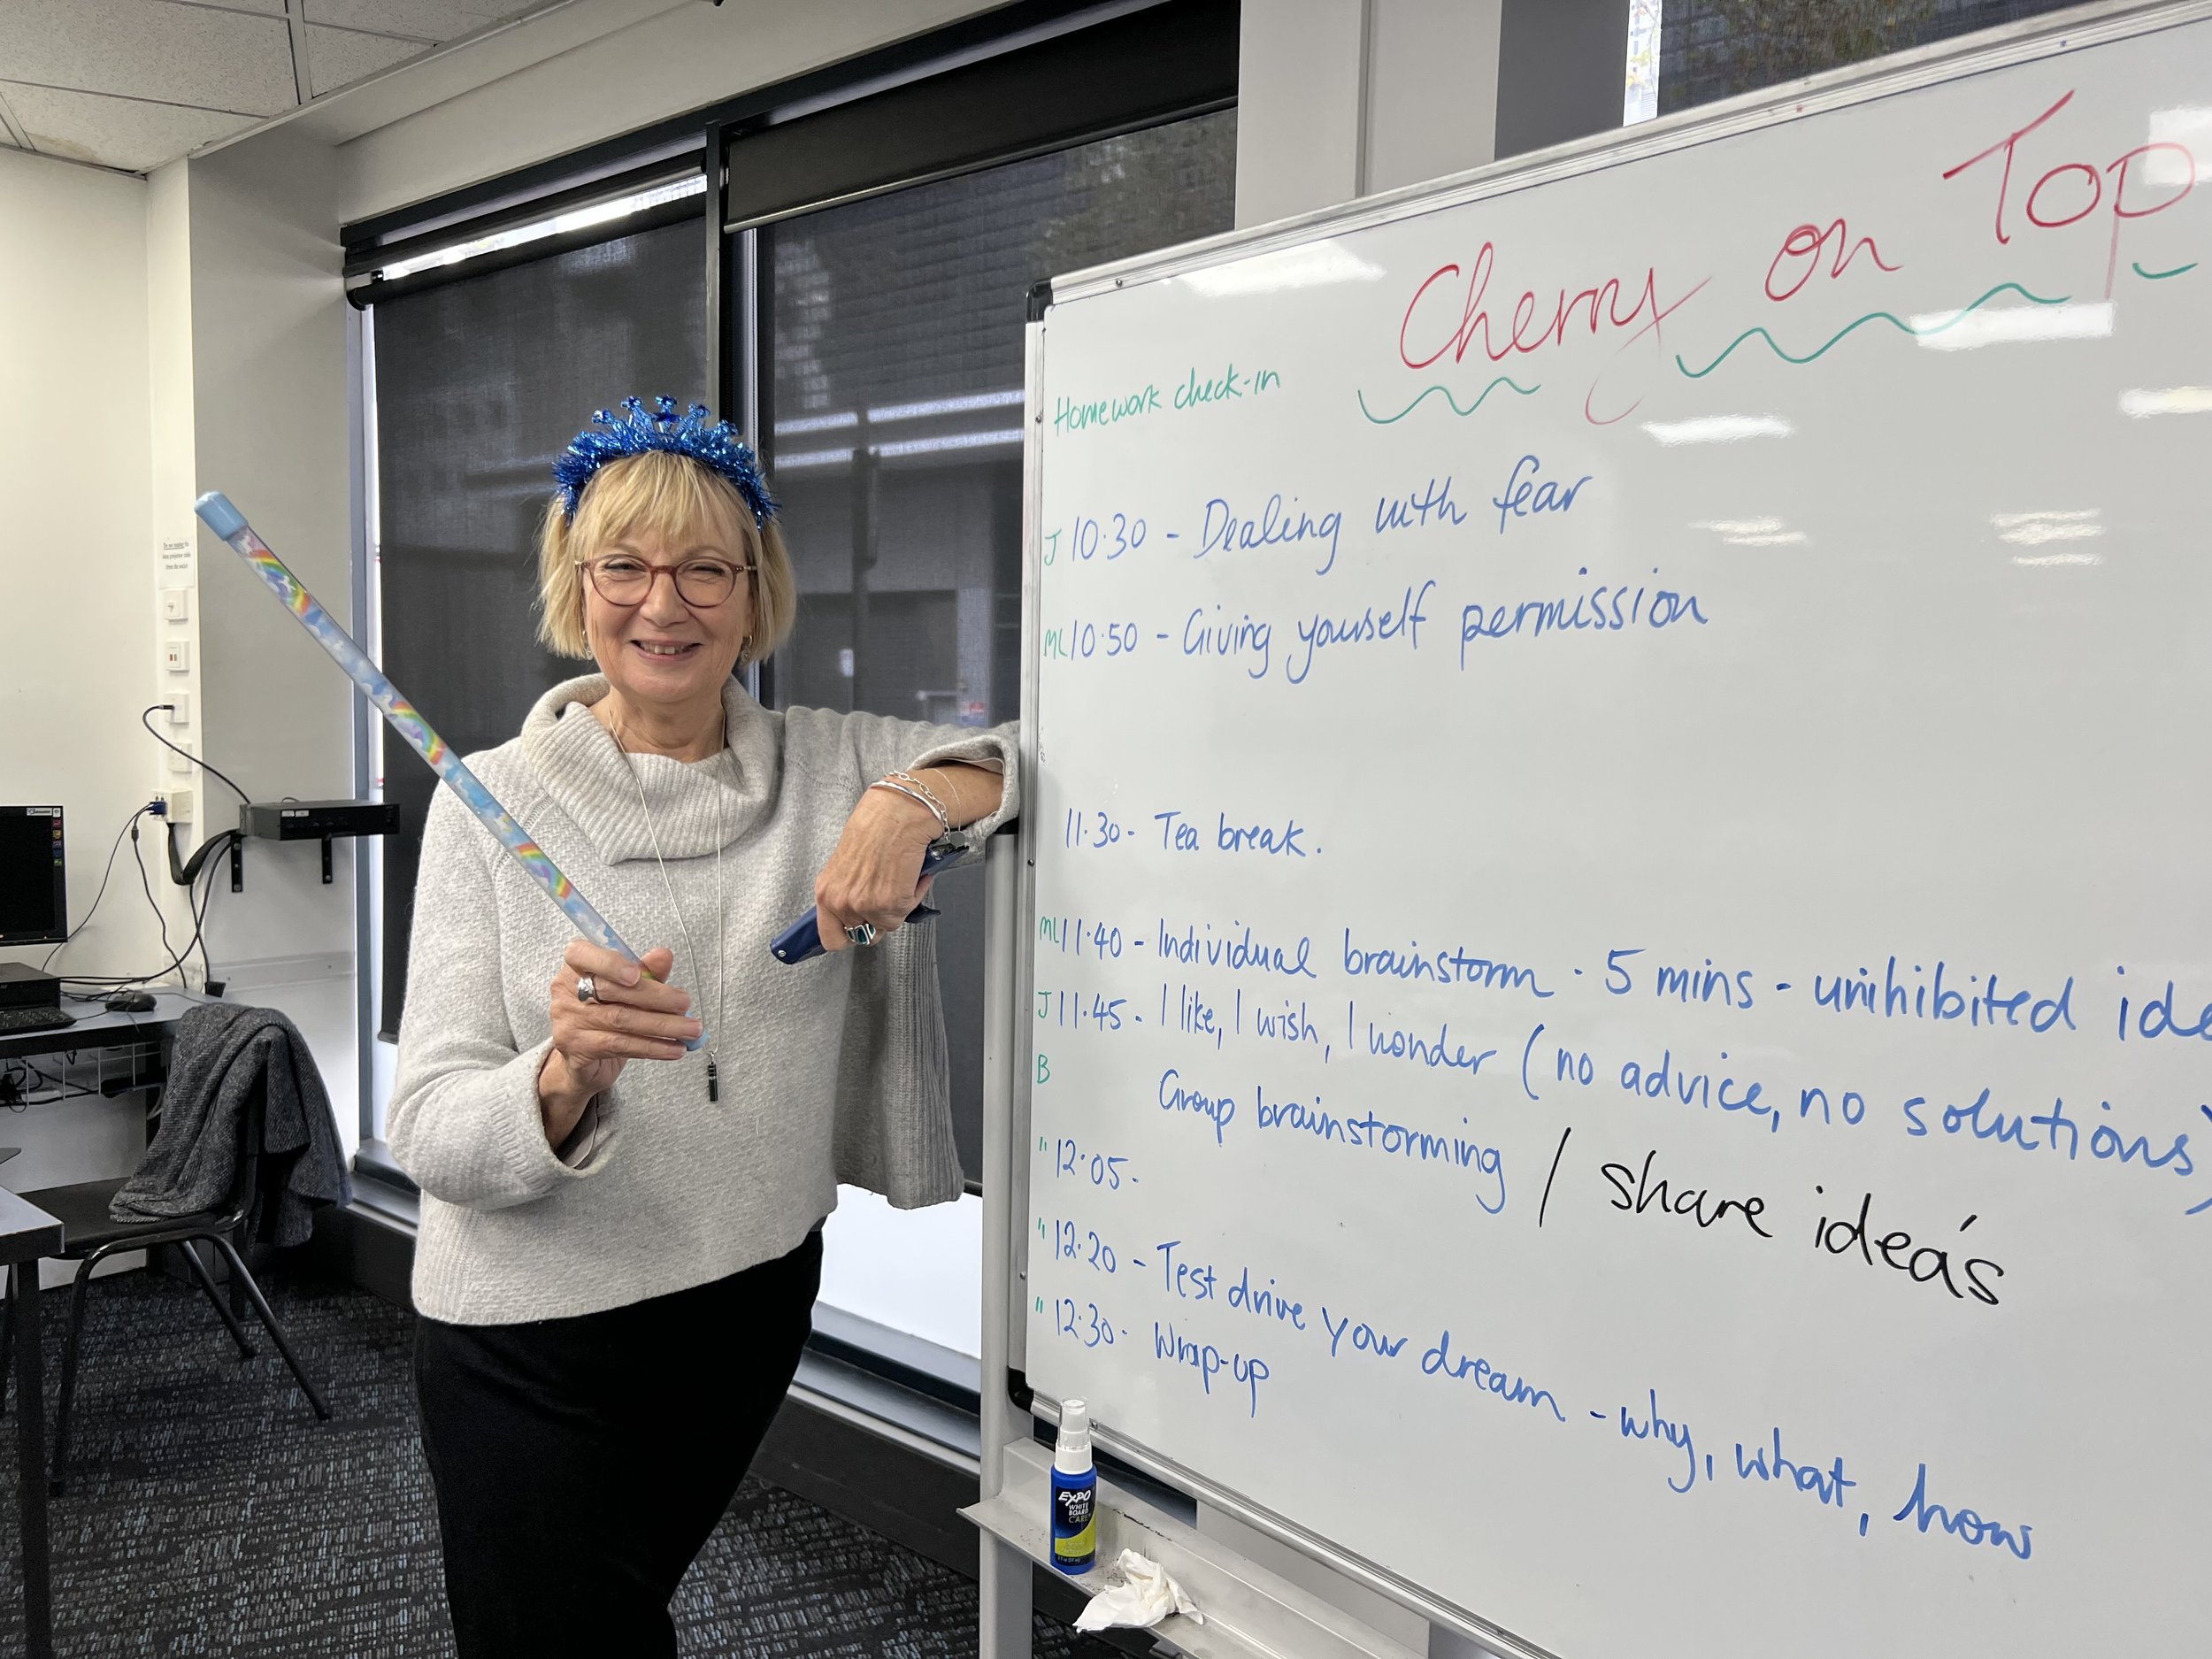 Cherry on Top
Homework check-in
J 10.30 - Dealing with fear
ML 10.50 - Giving yourself permission
11.30 - Tea break.
ML 11.40 - Individual brainstorm · 5 mins - uninhibited ide
J 11.45 - I like, I wish, I wonder (no advice, no solutions)
B Group brainstorming / share idea's
" 12.05.
" 12.20 - Test drive your dream - why, what, how
" 12.30 - Wrap-up
EXPO
WHITE
BOARD
CARE